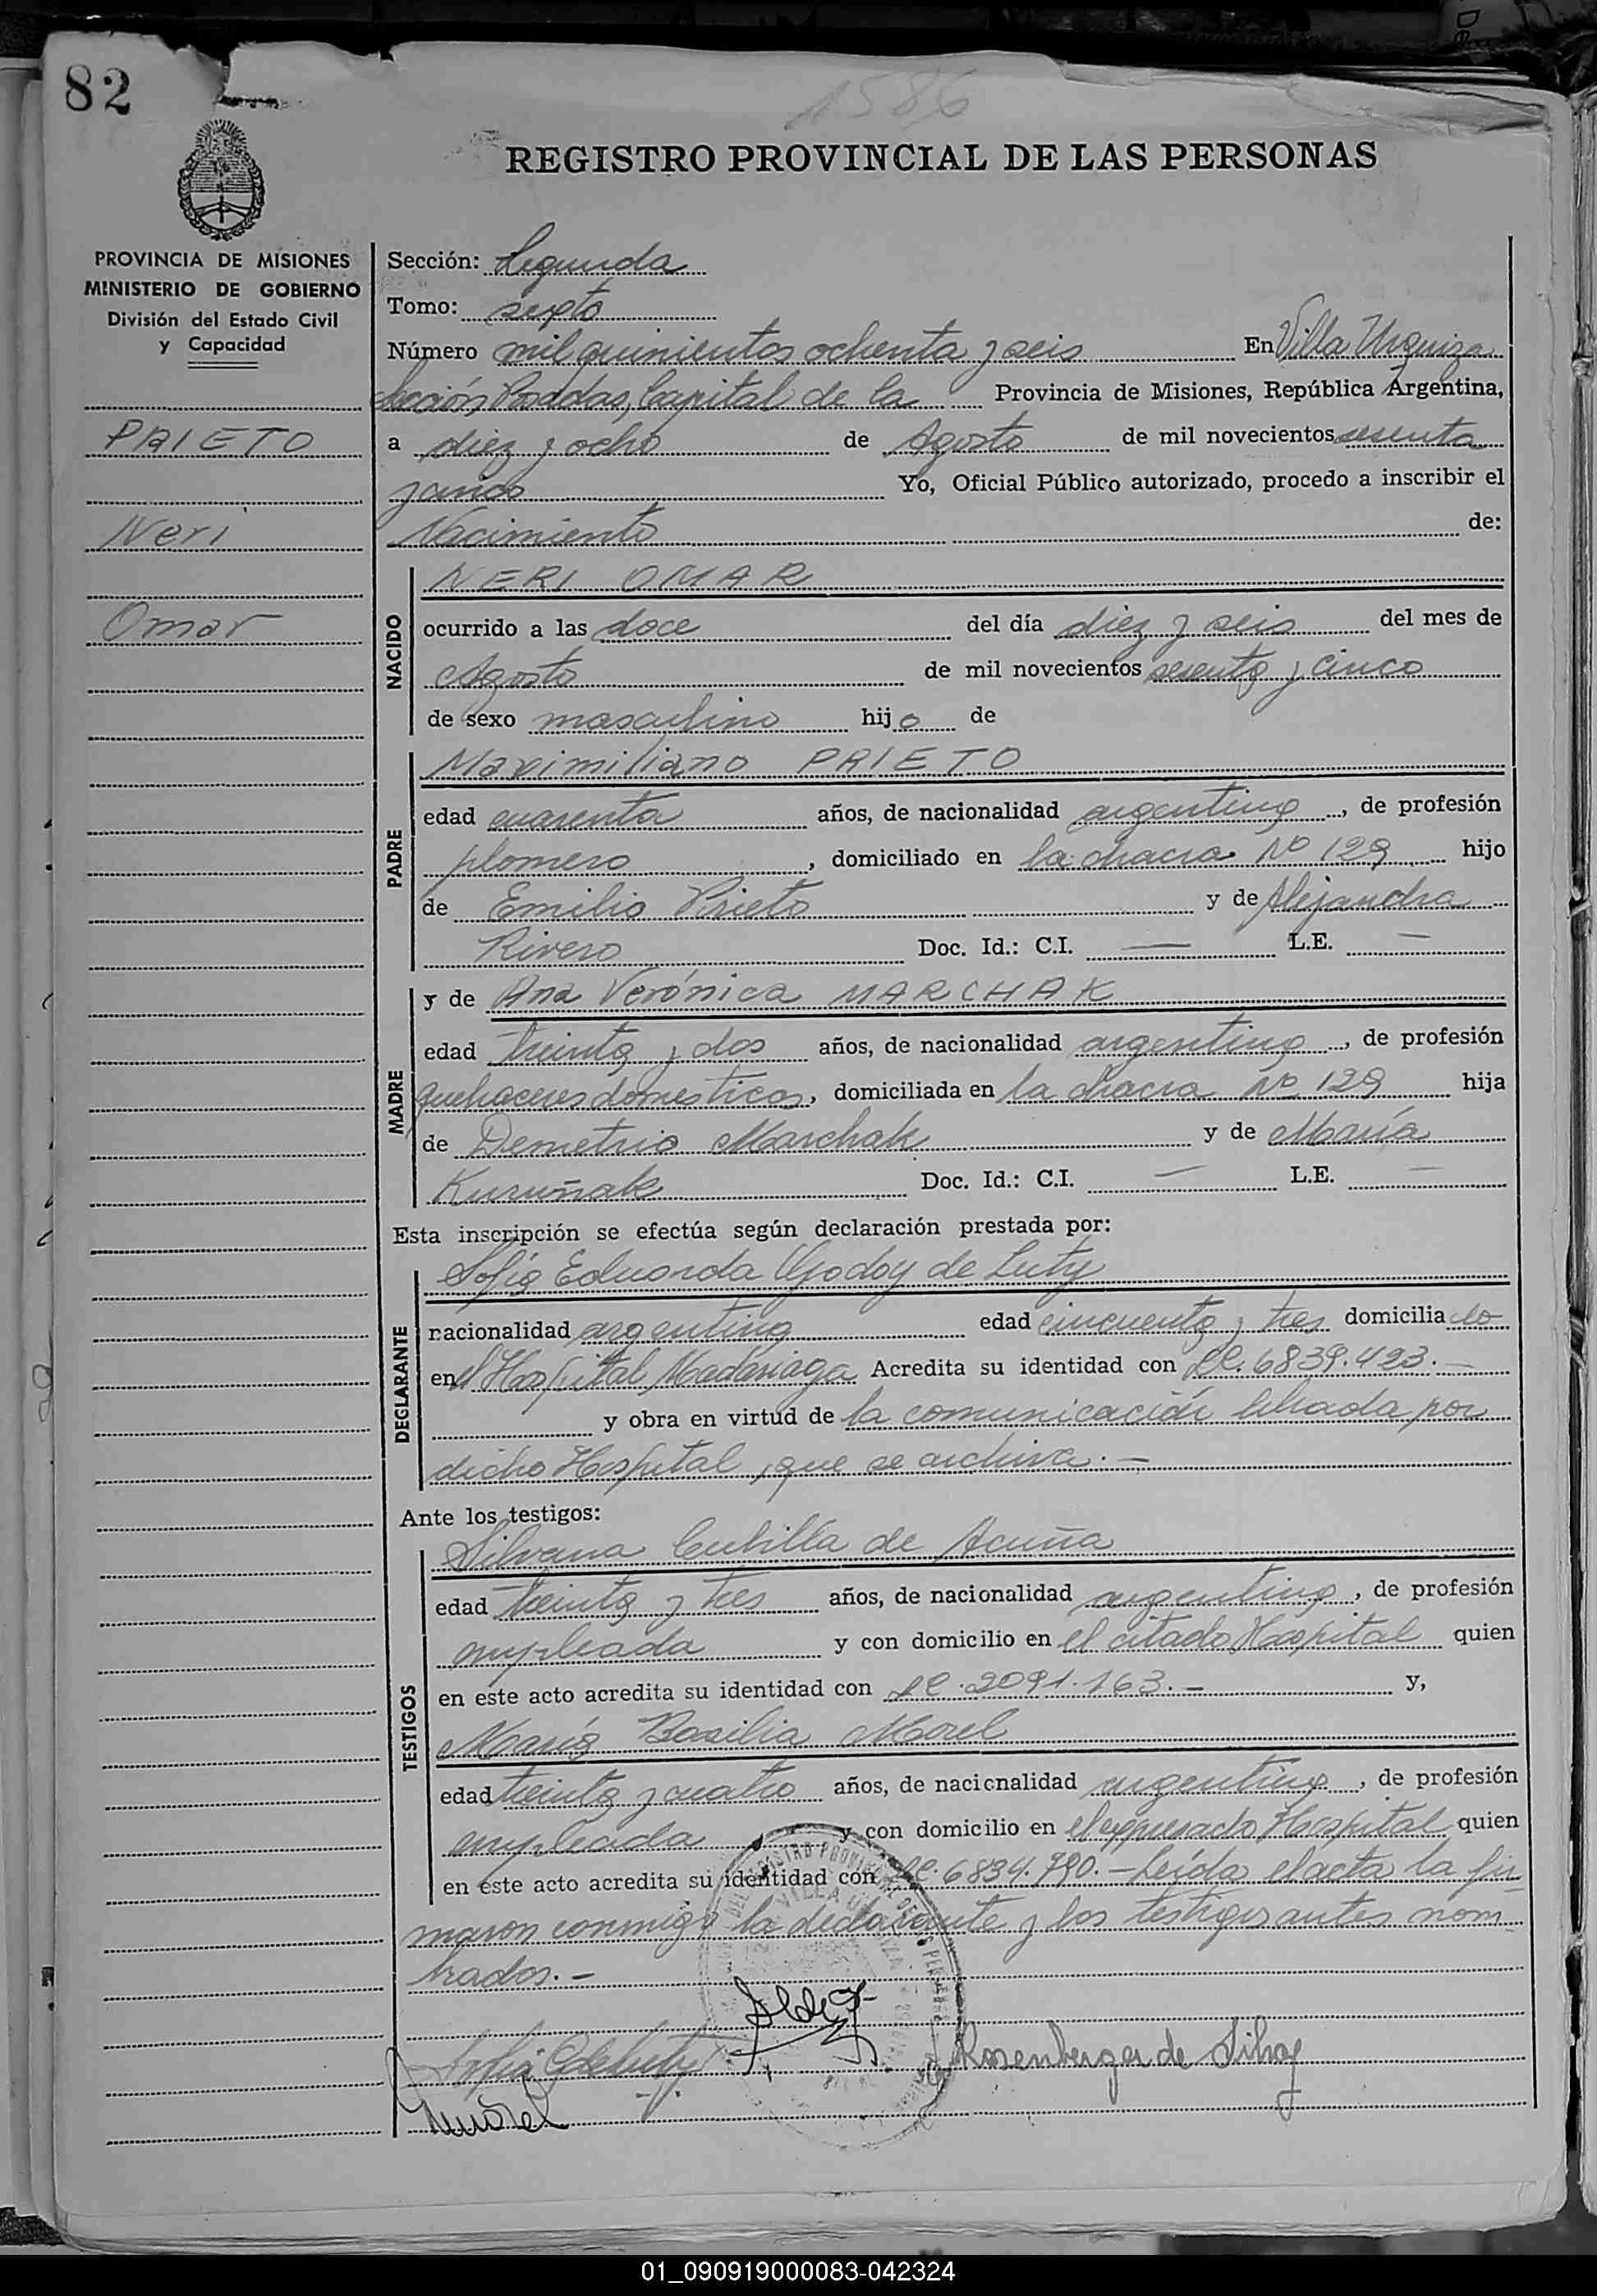 82
1586
REGISTRO PROVINCIAL DE LAS PERSONAS
PROVINCIA DE MISIONES
MINISTERIO DE GOBIERNO
División del Estado Civil
y Capacidad
PRIETO
Neri
Omar
Sección: Segunda
Tomo: sexto
Número mil quinientos ochenta y seis En Villa Urquiza
Sección Posadas, Capital de la Provincia de Misiones, República Argentina,
a diez y ocho de Agosto de mil novecientos sesenta
y cinco Yo, Oficial Público autorizado, procedo a inscribir el
Nacimiento de:
NACIDO
NERI OMAR
ocurrido a las doce del día diez y seis del mes de
Agosto de mil novecientos sesenta y cinco
de sexo masculino hijo de
PADRE
Maximiliano PRIETO
edad cuarenta años, de nacionalidad argentina, de profesión
plomero, domiciliado en la chacra Nº 129 hijo
de Emilio Prieto y de Alejandra
Rivero Doc. Id.: C.I. — L.E. —
MADRE
y de Ana Verónica MARCHAK
edad treinta y dos años, de nacionalidad argentina, de profesión
quehaceres domesticos, domiciliada en la chacra Nº 129 hija
de Demetrio Marchak y de María
Kuruñak Doc. Id.: C.I. — L.E. —
Esta inscripción se efectúa según declaración prestada por:
DECLARANTE
Sofia Eduarda Godoy de Luty
nacionalidad argentina edad cincuenta y tres domiciliado
en el Hospital Madariaga Acredita su identidad con LC. 6839.423.—
y obra en virtud de la comunicación librada por
dicho Hospital, que se archiva.—
Ante los testigos:
TESTIGOS
Silvana Cubilla de Acuña
edad treinta y tres años, de nacionalidad argentina, de profesión
empleada y con domicilio en el citado Hospital quien
en este acto acredita su identidad con LC. 2091.163.— y,
María Basilia Morel
edad treinta y cuatro años, de nacionalidad argentina, de profesión
empleada y con domicilio en el expresado Hospital quien
en este acto acredita su identidad con LC. 6834.790.— Leída el acta la fir
maron conmigo la declarante y los testigos antes nom
brados.—
Rosenberger de Silva
01_090919000083-042324